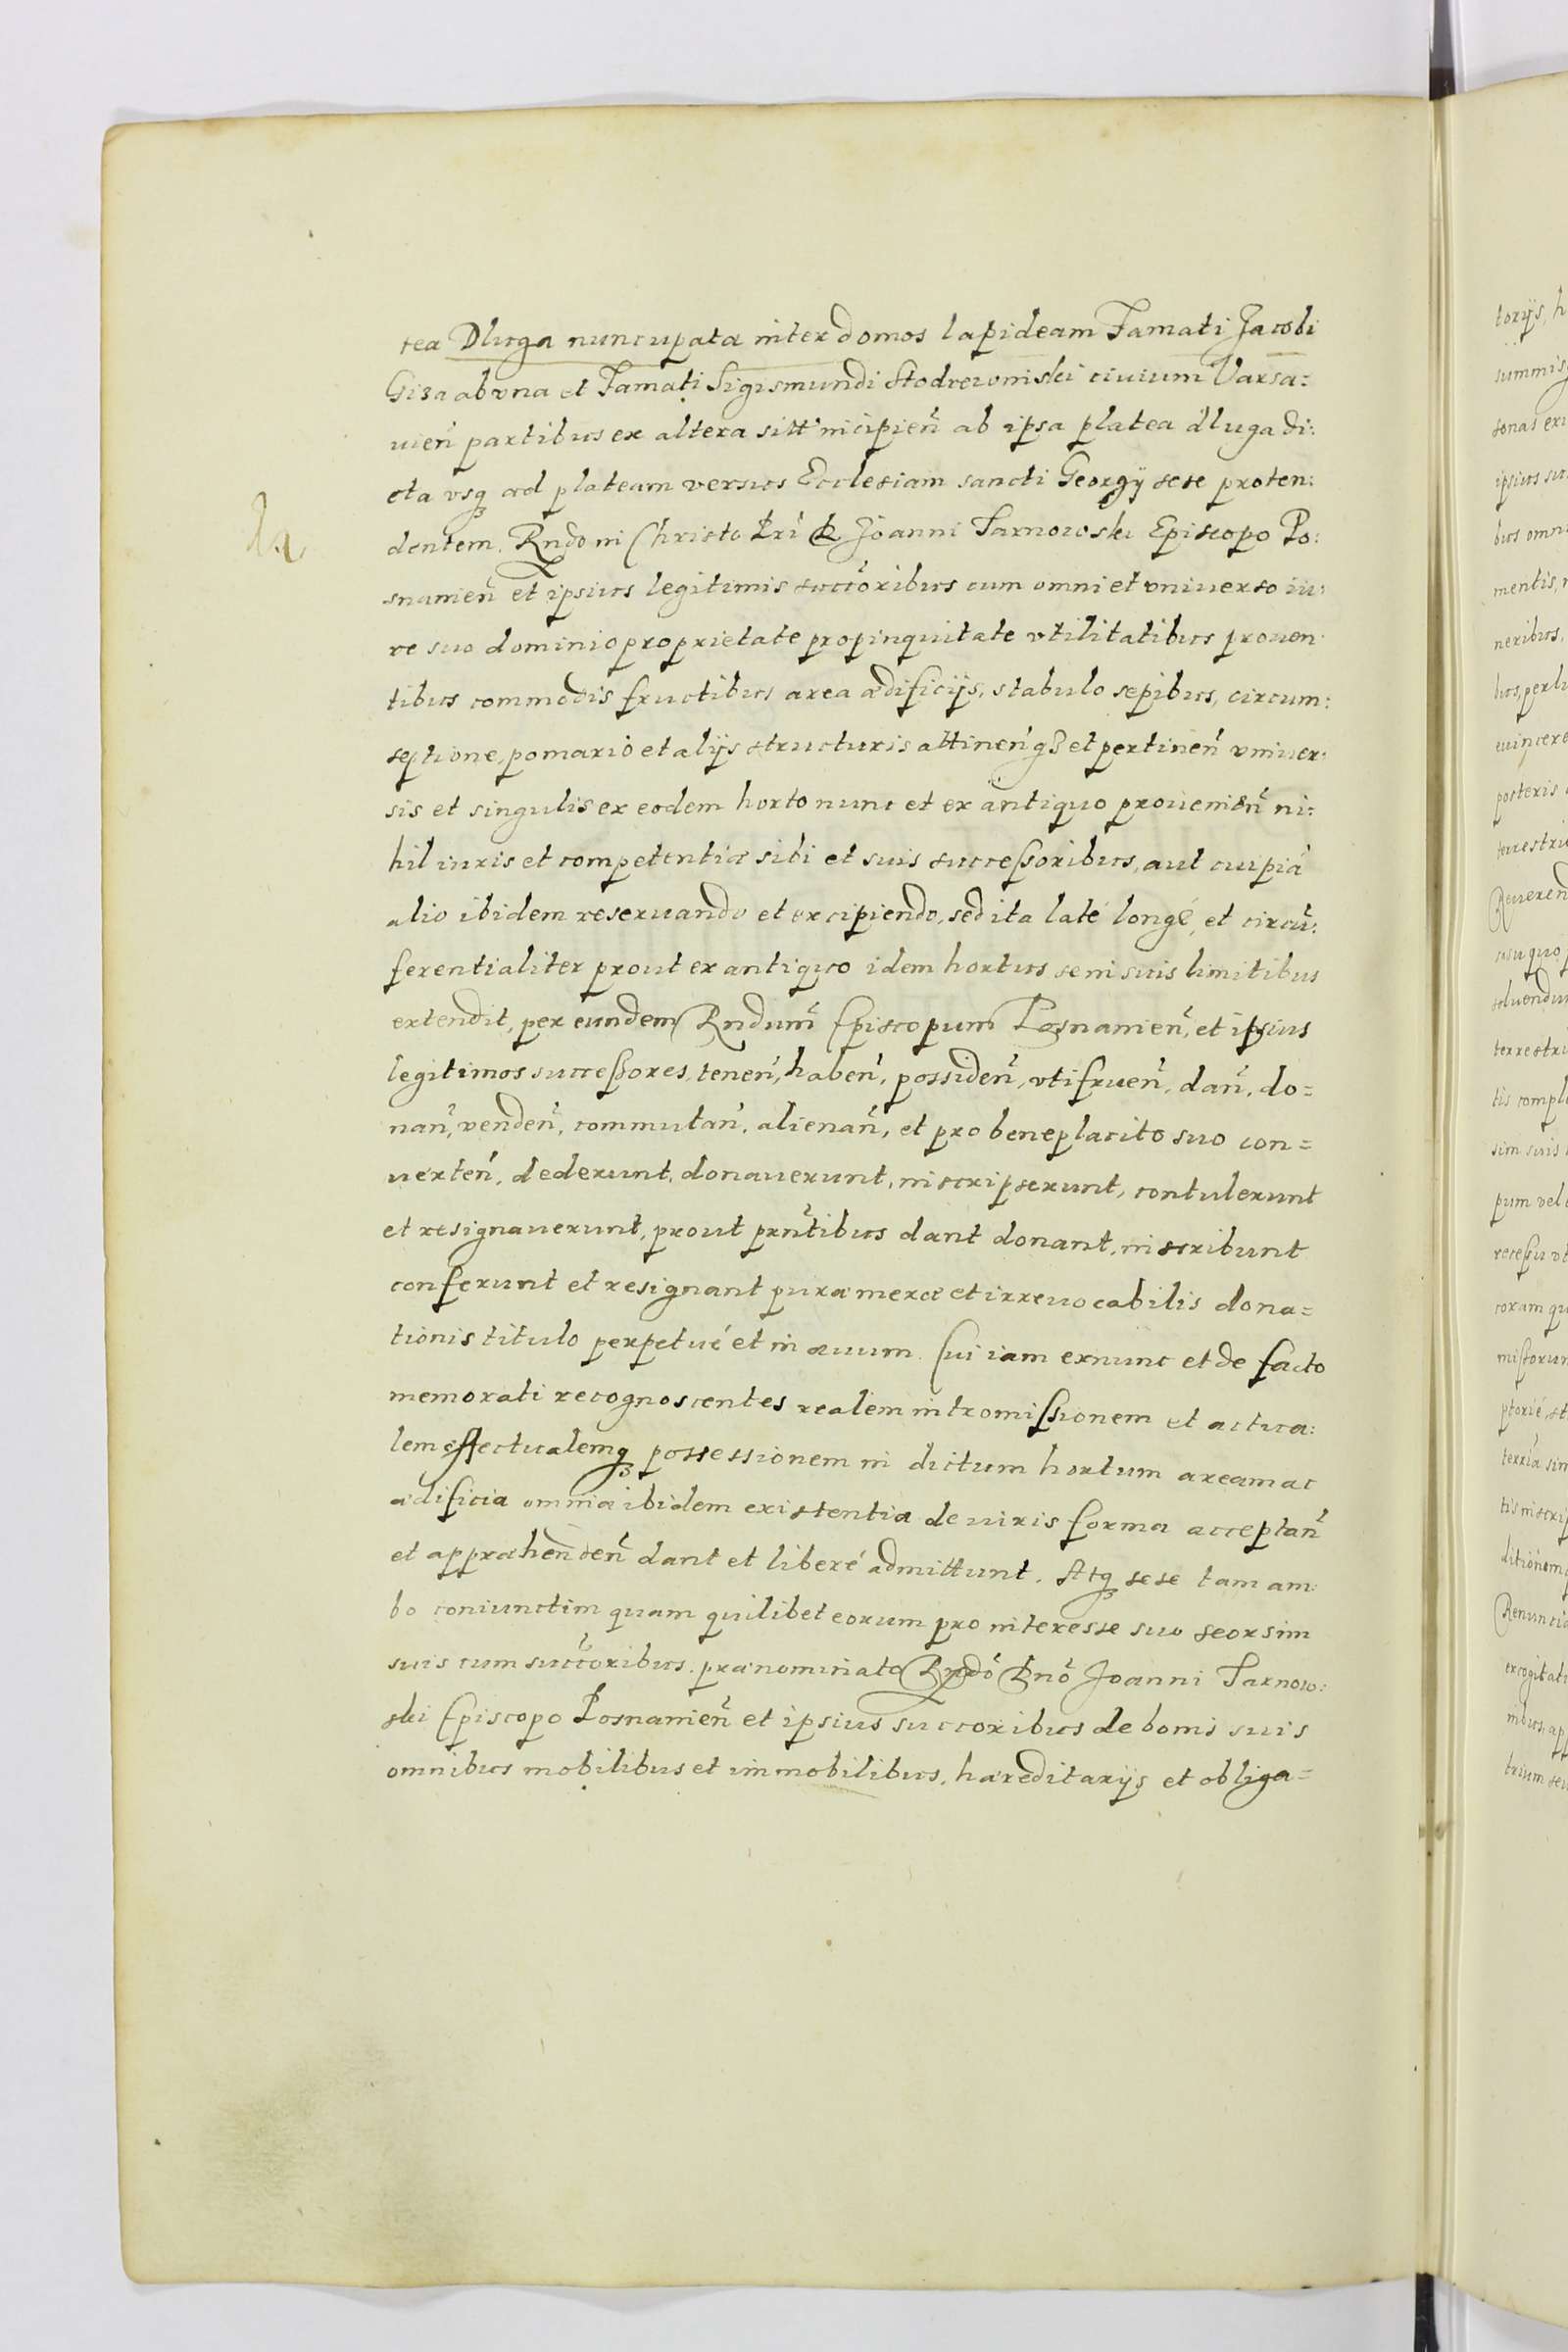 tea Dluga nuncupata inter domos lapideam Famati Jacobi
Giza ab vna et Famati Sigismundi Stodrewniski ciuium Varsa:
uień partibus ex altera sitt' incipień ab ipsa platea dluga di:
cta vsq ad plateam versus Ecclesiam sancti Georgÿ sese proten:
dentem. Rndo in Christo Pri D Joanni Tarnowski Episcopo Po:
snanień et ipsius legitimis succoribus cum omni et vniuerso iu:
re suo dominio proprietate propinquitate vtilitatibus prouen
tibus commodis fructibus area ædificijs, stabulo sepibus, circum:
septione, pomario et alijs structuris attineń q3 et pertineń vniuer:
sis et singulis ex eodem horto nunc et ex antiquo prouenień ni:
hil iuris et competentiæ sibi et suis successoribus, aut cuipiā
alio ibidem reseruando et excipiendo, sed ita laté longé, et circū:
ferentialiter prout ex antiquo idem hortus se in suis limitibus
extendit, per eundem Rndum Episcopum Posnanień, et ipsius
legitimos successores, teneń, habeń, possideń, vtifrueń, dań, do=
nań, vendeń, commutań, alienań, et pro beneplacito suo con=
uerteń, dederunt, donauerunt, inscripserunt, contulerunt
et resignauerunt, prout prntibus dant donant, inscribunt
conferunt et resignant puræ meræ et irreuocabilis dona=
tionis titulo perpetué et in æuum. Cui iam exnunc et de facto
memorati recognoscentes realem intromissionem et actua:
lem effectualemq possessionem in dictum hortum aream ac
ædificia omnia ibidem existentia de iuris forma acceptań
et appræhendeń dant et liberé admittunt. Atq sese tam am:
bo coniunctim quam quilibet eorum pro interesse suo seorsim
suis cum succoribus prænominato Rndo Dno Joanni Tarnow:
ski Episcopo Posnanień et ipsius succoribus de bonis suis
omnibus mobilibus et immobilibus, hæreditarijs et obliga=